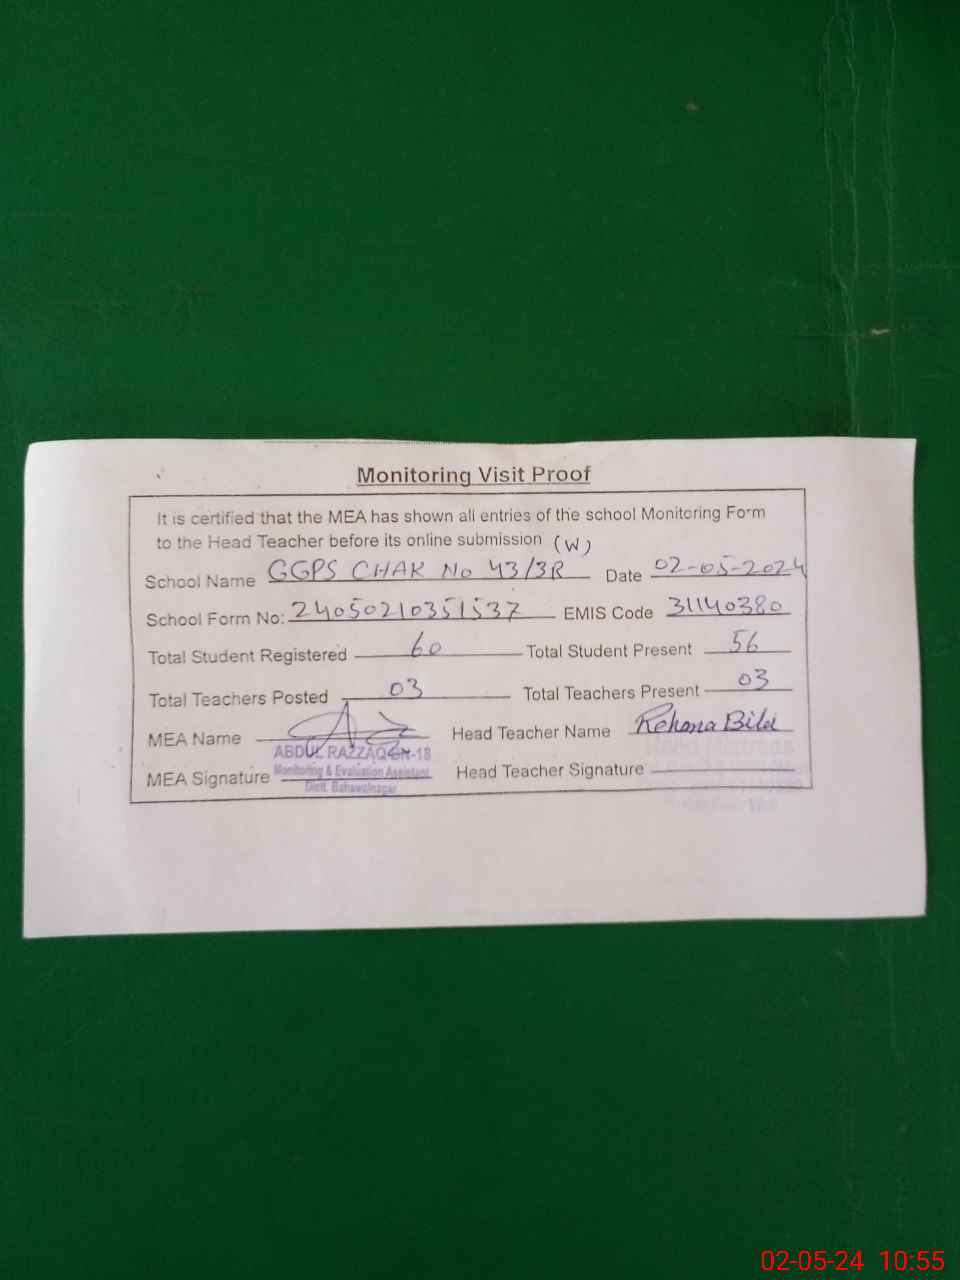 Monitoring Visit Proof
It is certified that the MEA has shown all entries of the school Monitoring Form
to the Head Teacher before its online submission (W)
School Name GGPS CHAK No 43/3R Date 02-05-2024
School Form No: 24050210351537 EMIS Code 31140380
Total Student Registered 60 Total Student Present 56
Total Teachers Posted 03 Total Teachers Present 03
MEA Name Head Teacher Name Rehana Bibi
ABDUL RAZZAQ BN-18
MEA Signature Monitoring & Evaluation Assistant Head Teacher Signature
Distt. Bahawalnagar
02-05-24 10:55